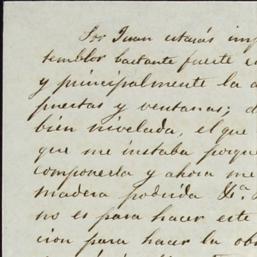 Por Juan estarás imp
temblor bastante fuerte e
y principalmente la a
puertas y ventanas; d
bien nivelada, el que
que me instaba porque
componerla y ahora me
madera podrida Da.
no es para hacer este
cion para hacer la ob